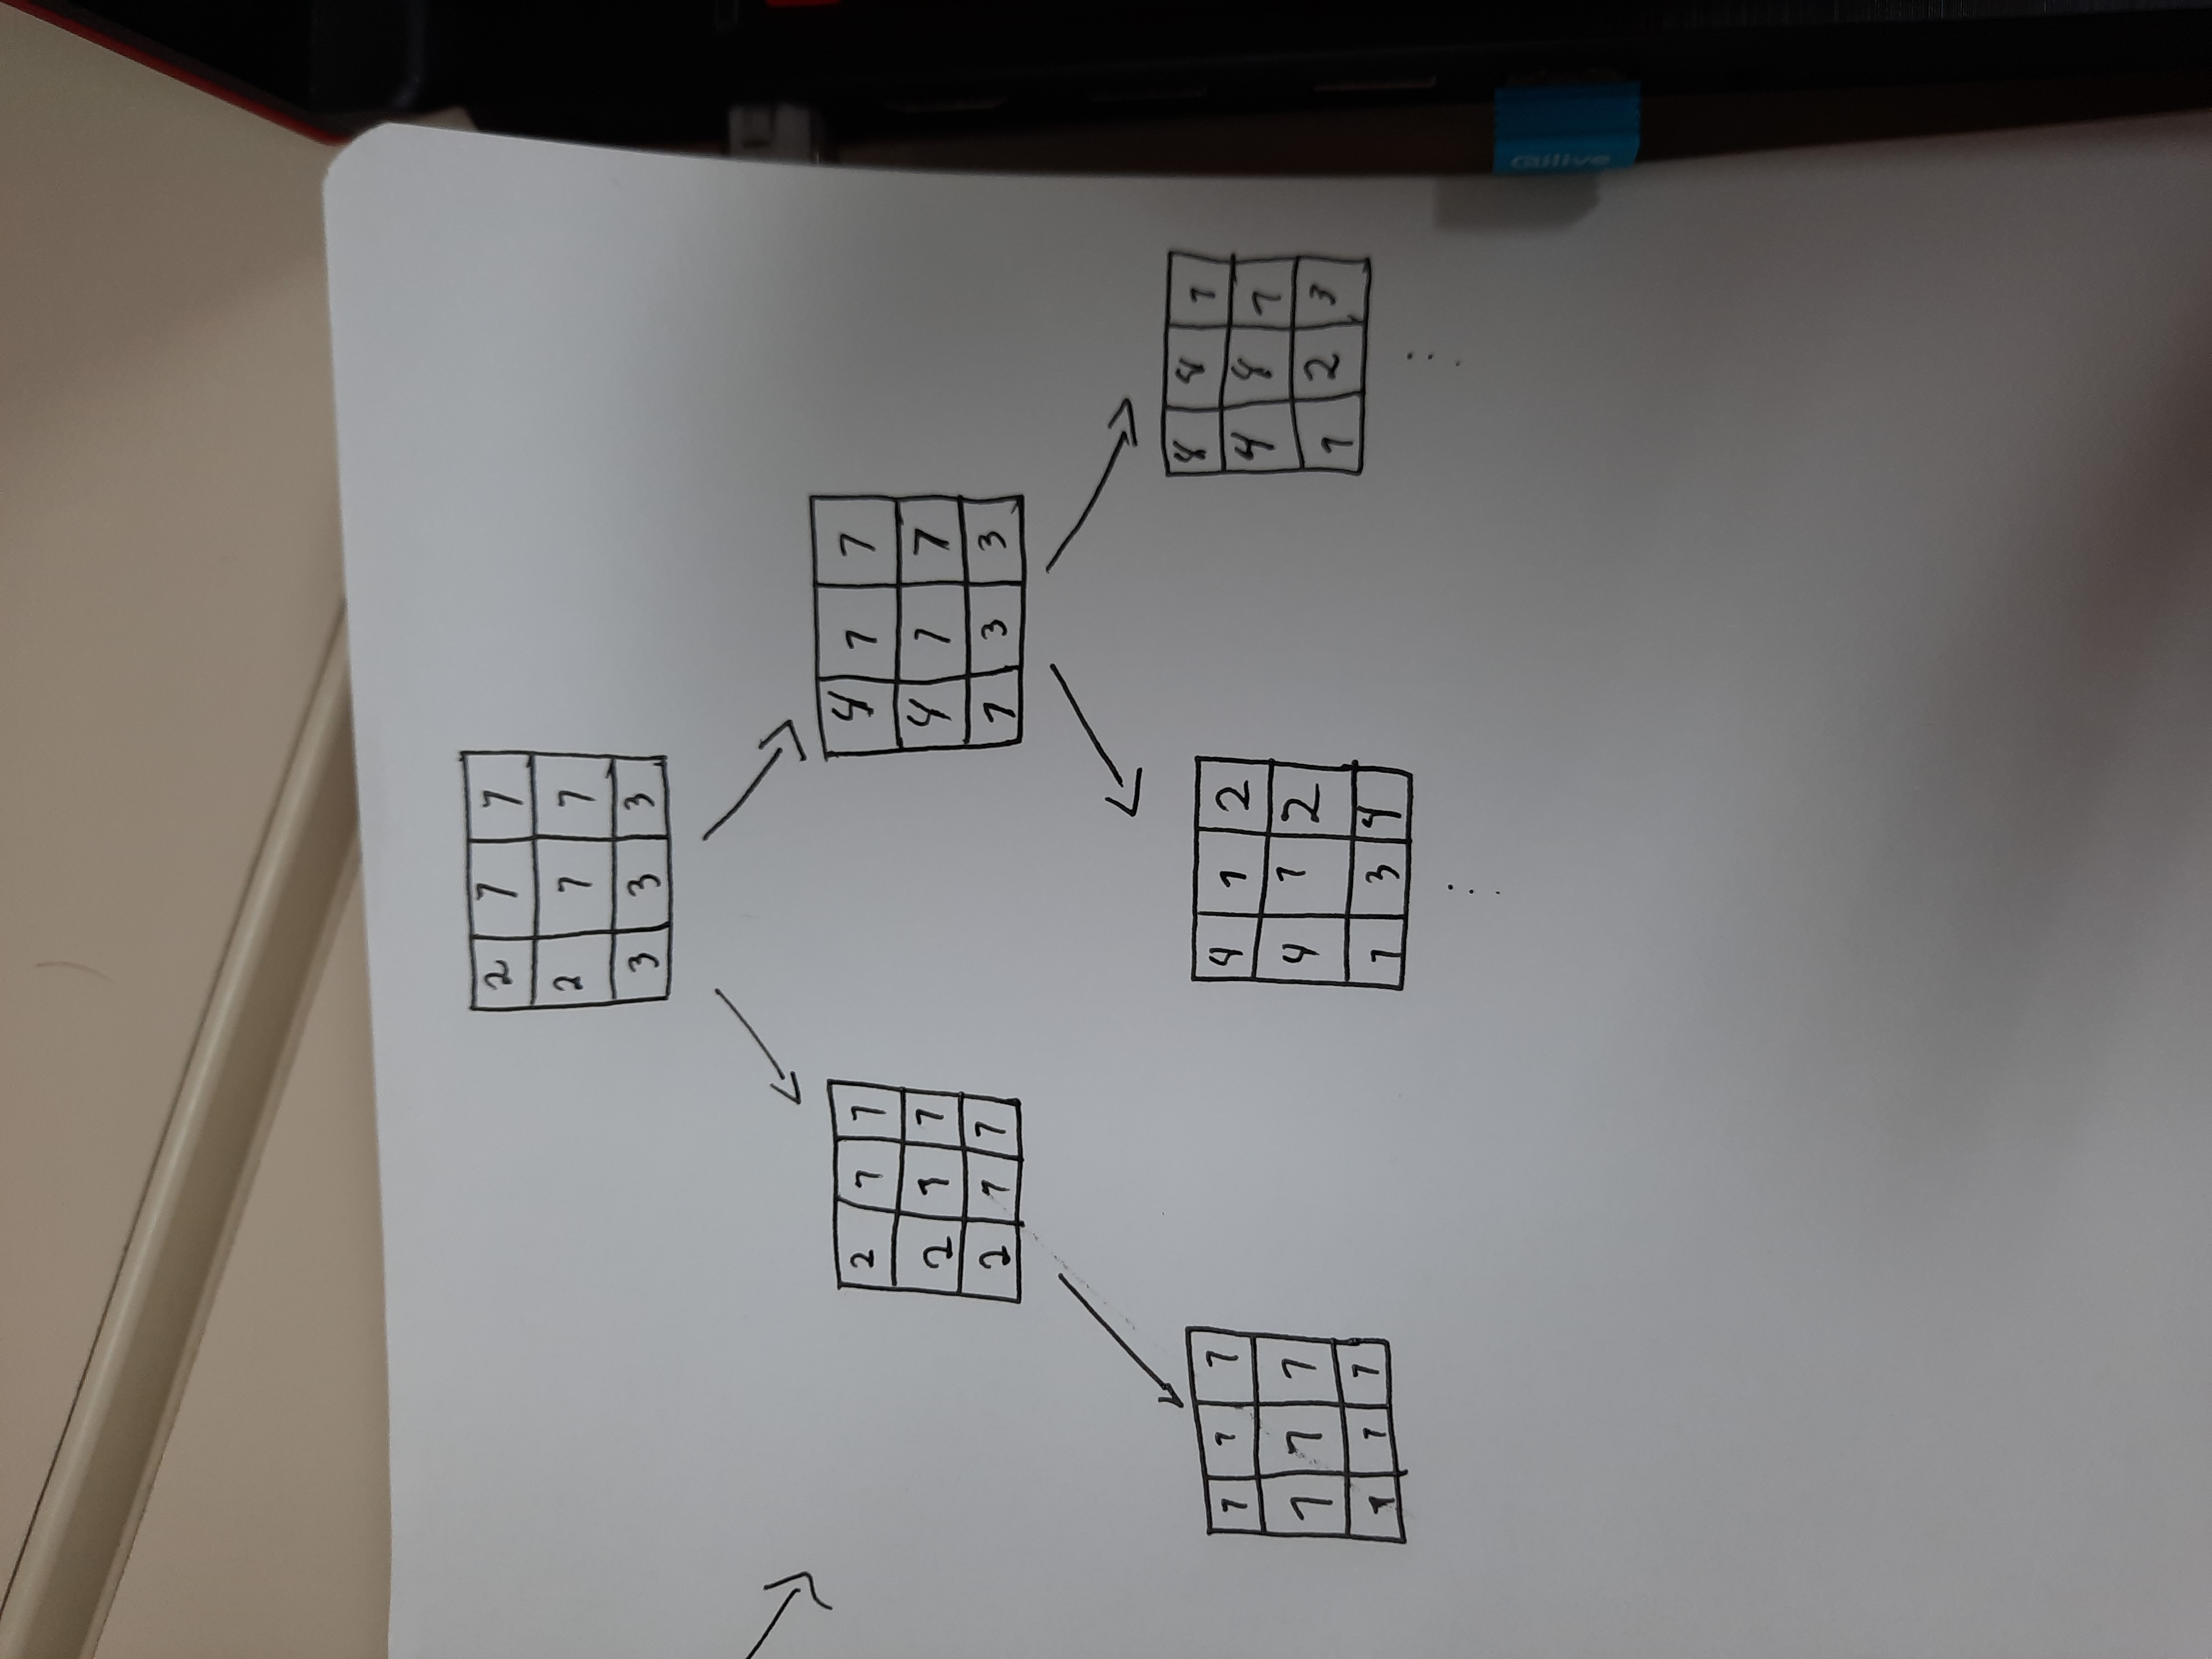 2 7 7
2 7 7
3 3 3
2 7 7
2 7 7
2 7 7
4 7 7
4 7 7
7 3 3
7 7 7
7 7 7
7 7 7
4 7 2
4 7 2
7 3 4
4 4 7
4 4 7
7 2 3
Qilive